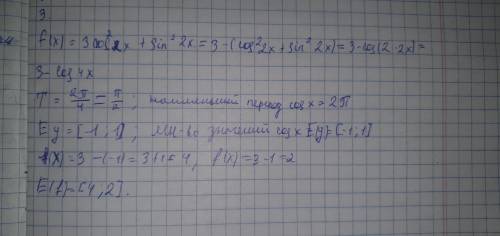 3
f(x) = 3 cos² 2x + sin² 2x = 3 - (cos² 2x + sin² 2x) = 3 - cos(2·2x) =
3 - cos 4x
T = 2π/4 = π/2 ; период cos x = 2π
Ey = [-1; 1] ; мн-во значений cos x E(y) = [-1; 1]
f(x) = 3 - (-1) = 3+1 = 4, f(x) = 3-1 = 2
E(f) = [4, 2].